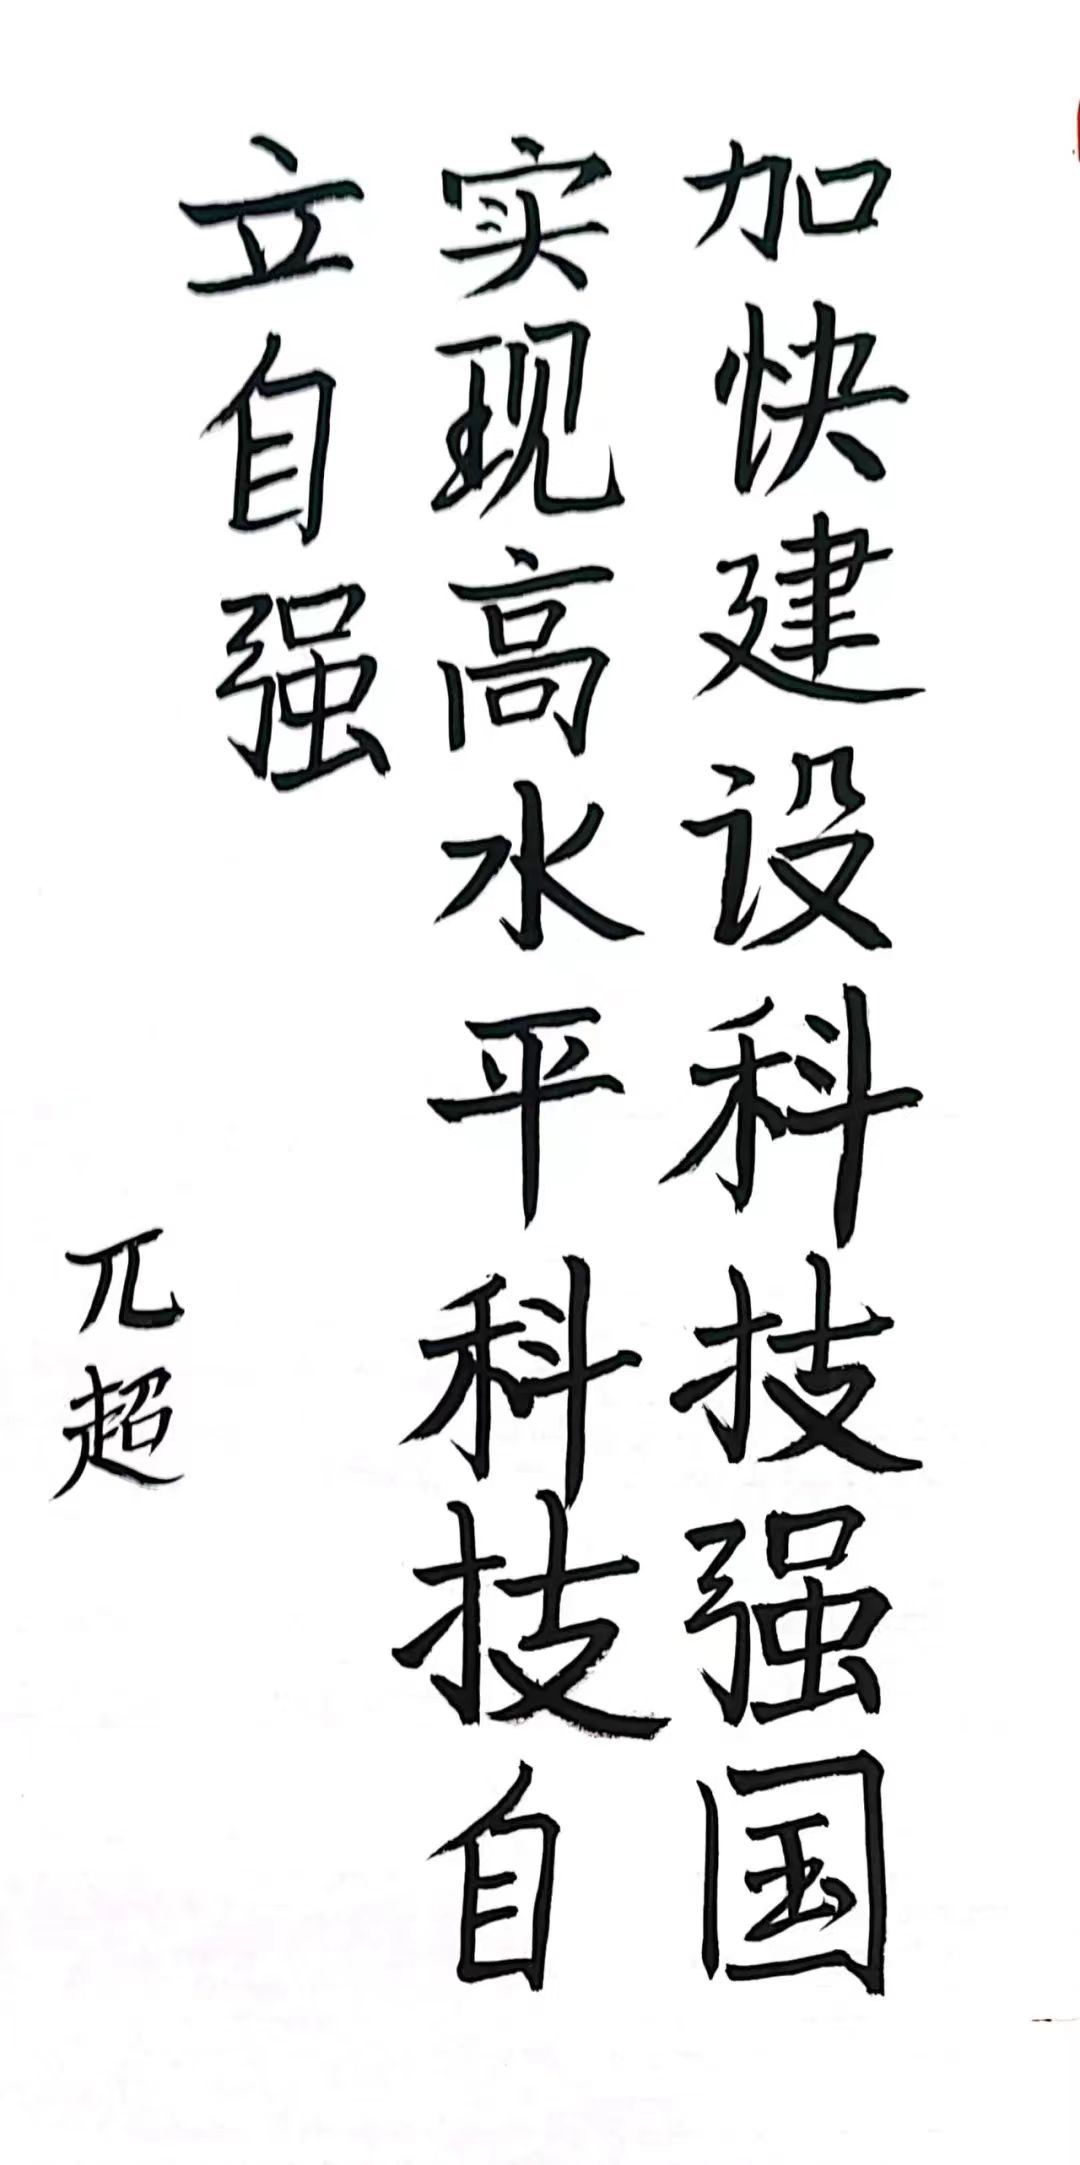 加快建设科技强国
实现高水平科技自
立自强
兀超